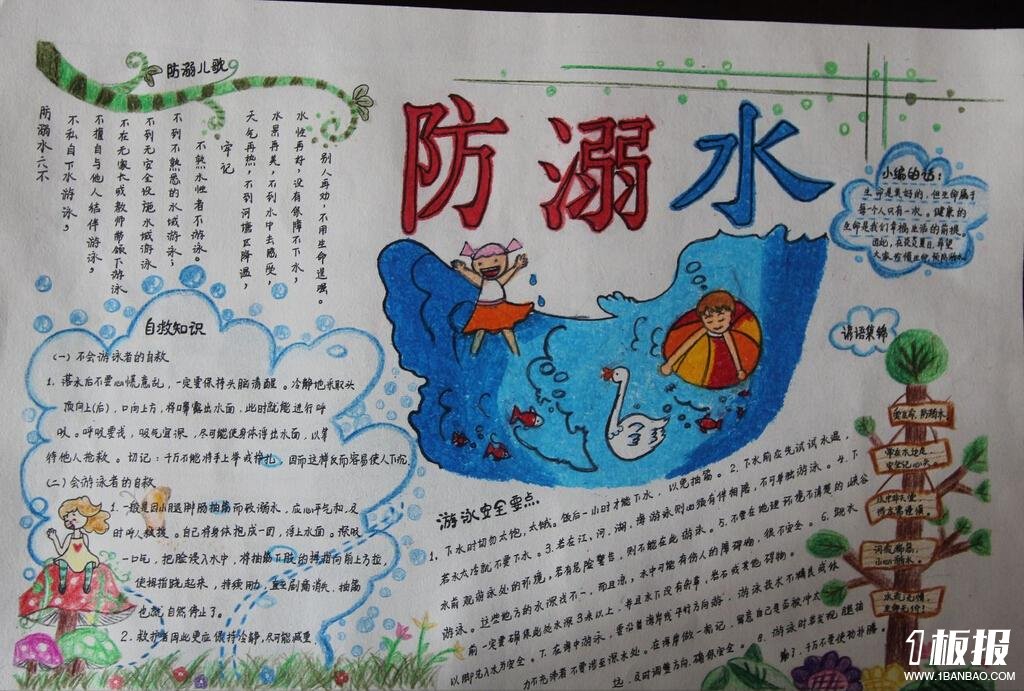 防溺儿歌
防溺水
别人再劝,不用生命逞强。
水性再好,没有保障不下水,
水果再美,不到水中去感受,
天气再热,不到河塘区降温,
牢记
不熟水性者不游泳。
不到不熟悉的水域游泳;
不到无安全设施水域游泳
不在无家长或教师带领下游泳
不擅自与他人结伴游泳,
不私自下水游泳,
防溺水六不
小编的话:
生命是美好的,但生命属于
每个人只有一次。健康的
生命是我们幸福生活的前提。
因此,在炎炎夏日,希望
大家
预防溺水
自救知识
(一)不会游泳者的自救
1.落水后不要心慌意乱,一定要保持头脑清醒。冷静地采取头
顶向上(后),口向上方,将口鼻露出水面,此时就能进行呼
吸。呼吸要浅,吸气宜深,尽可能使身体浮出水面,以等
待他人抢救。切记:千万不能将手上举或挣扎,因而这样反而容易使人下沉.
(二)会游泳者的自救
1.一般是因小腿腓肠抽筋而致溺水,应心平气和,及
时呼人救援。自己将身体抱成一团,浮上水面。深吸
一口气,把脸浸入水中,将抽筋下肢的拇指向前上方拉,
使拇指跷起来,持续用力,直至剧痛消失,抽筋
也就自然停了。
2.救护者因此更应保持冷静,尽可能减重
谚语集锦
爱生命,防溺水
安全记心头。
水火无情,
生命无价!
游泳安全要点
1.下水时切勿太饱,太饿。饭后一小时才能下水,以免抽筋。2.下水前应先试试水温,
若水太冷就不要下水。3.若在江,河,湖,海游泳则必须有伴相陪,不可单独游泳。4.下
水前观游泳处的环境,若有危险警告,则不能在此游泳。5.不要在地理环境不清楚的峡谷
游泳。这些地方的水深浅不一,而且凉,水中可能有伤人的障碍物,很不安全。6.跳水
前一定要确保此处水深3米以上,并且水下没有杂草,岩石或其他障碍物。
以脚先入水为安全。7.在海中游泳,要沿着海岸线平行方向游,游泳技术不精良或体
力不充沛者不要涉至深水处。在海岸做一标记,留意自己是否被冲太
远,及时调整方向,确保安全。8.游泳时若发现腿抽
筋了,千万不要
1板报
WWW.1BANBAO.COM